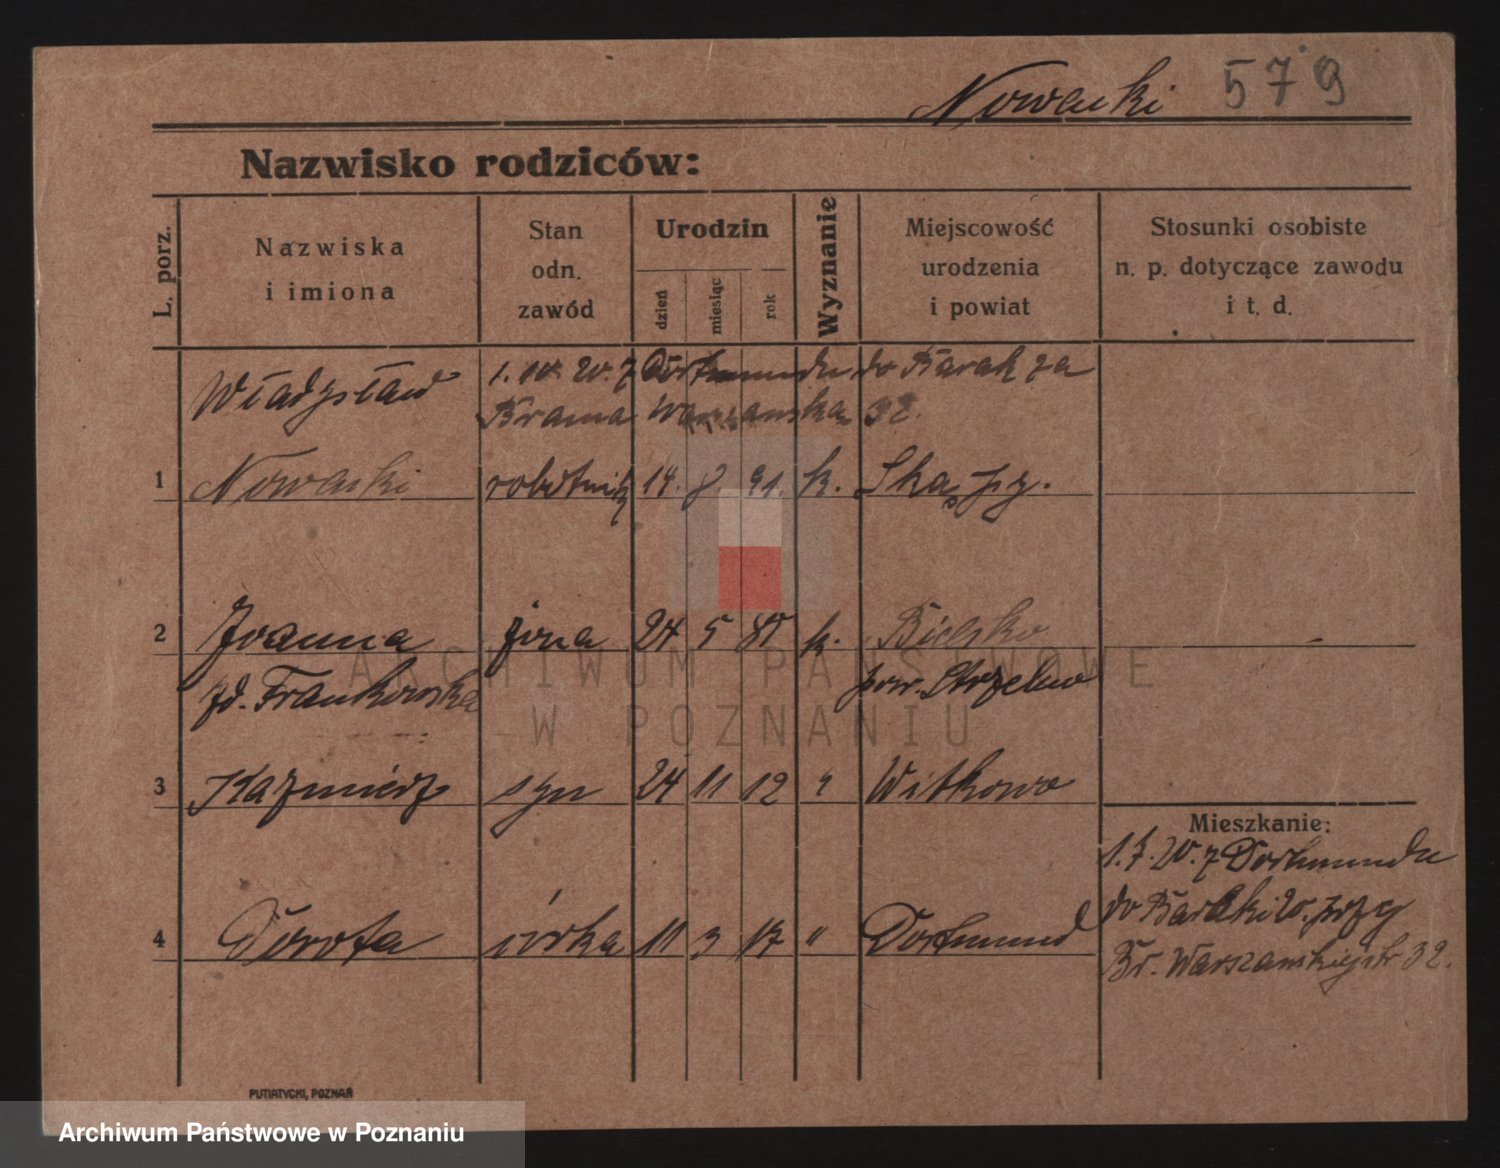 Nowacki 579
Nazwisko rodziców:
L. porz.
Nazwiska
i imiona
Stan
odn.
zawód
Urodzin
dzień
miesiąc
rok
Wyznanie
Miejscowość
urodzenia
i powiat
Stosunki osobiste
n. p. dotyczące zawodu
i t. d.
Władysław z Dortmundu do Barak za
Brama Warszawska 32.
1 Nowacki robotnik 14. 8 91. k.
2 Joanna żona 24 5 k. Bielsko
zd. Frankowska pow. Strzelno
3 Kazmierz syn 24 11 12 " Witkowo
Mieszkanie:
z Dortmundu
4 Dorota córka 11 3 17 " Dortmund
do Baraki przy
Br. Warszawskiej 32.
ARCHIWUM PAŃSTWOWE
W POZNANIU
PUTIATYCKI, POZNAŃ
Archiwum Państwowe w Poznaniu